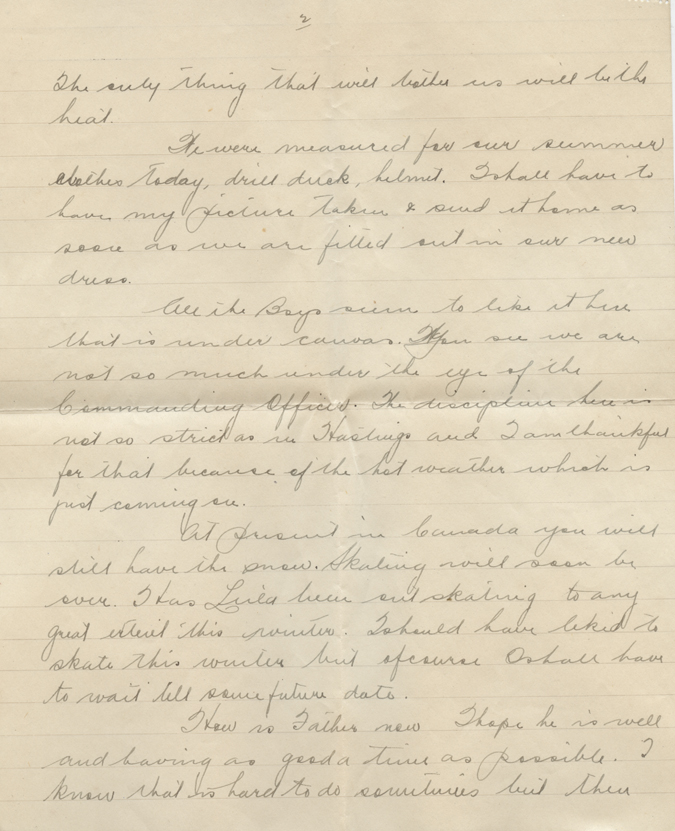 2
The only thing that will bother us will be the
heat.
We were measured for our summer
clothes today, drill duck, helmet. I shall have to
have my picture taken & send it home as
soon as we are fitted out in our new
dress.
All the Boys seem to like it here
that is under canvas. You see we are
not so much under the eye of the
Commanding Officer. The discipline here is
not so strict as in Hastings and I am thankful
for that because of the hot weather which is
just coming on.
At present in Canada you will
still have the snow. Skating will soon be
over. Has Leila been out skating to any
great extent this winter. I should have liked to
skate this winter but of course I shall have
to wait till some future date.
How is Father now I hope he is well
and having as good a time as possible. I
know that is hard to do sometimes but then